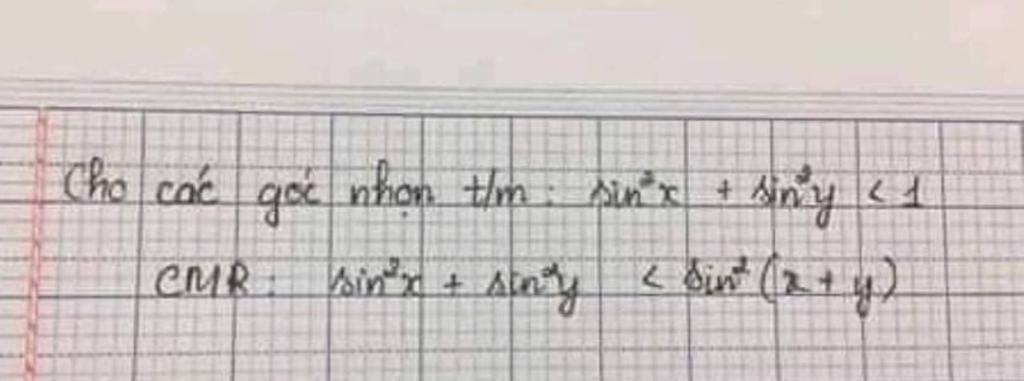 Cho các góc nhọn t/m: sin²x + sin²y < 1
CMR: sin²x + sin²y < sin²(x + y)